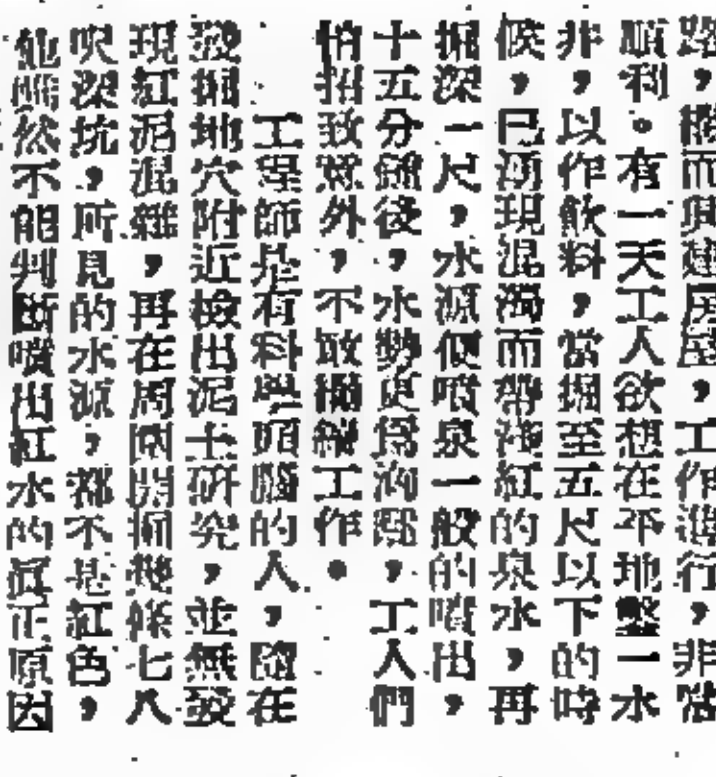 路，繼而興建房屋，工作進行，非常
順利。有一天工人欲想在平地鑿一水
井，以作飲料，當掘至五尺以下的時
候，已湧現混濁而帶淺紅的泉水，再
掘深一尺，水源便噴泉一般的噴出，
十五分鐘後，水勢更爲洶湧，工人們
怕招致意外，不敢繼續工作。
工程師是有科學頭腦的人，隨在
發掘地穴附近檢出泥土研究，並無發
現紅泥混雜，再在周圍開掘幾條七八
呎深坑，所見的水源，都不是紅色，
他雖然不能判斷噴出紅水的眞正原因